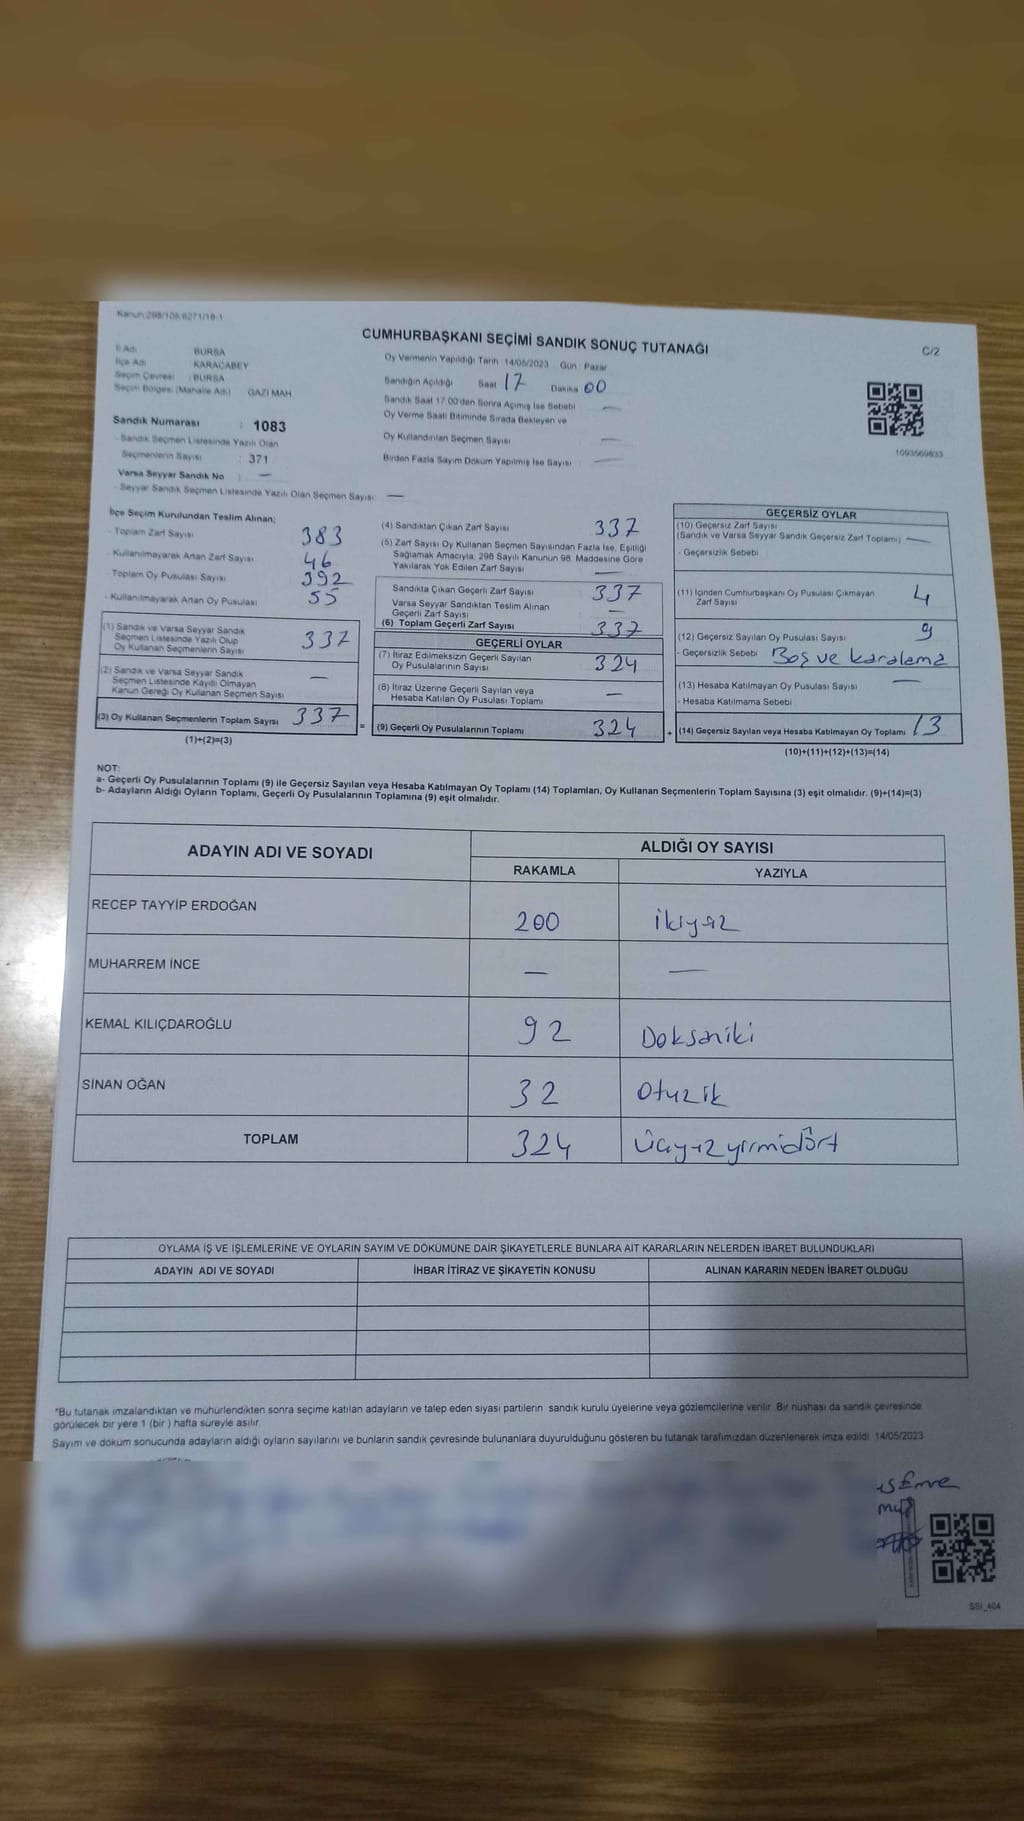 Kanun:298/108,6271/18-1
CUMHURBAŞKANI SEÇİMİ SANDIK SONUÇ TUTANAĞI
C/2
İl Adı BURSA
İlçe Adı KARACABEY
Seçim Çevresi : BURSA
Seçim Bölgesi (Mahalle Adı) GAZİ MAH
Oy Vermenin Yapıldığı Tarih 14/05/2023 Gün Pazar
Sandığın Açıldığı Saat 17 Dakika 00
Sandık Saat 17:00'den Sonra Açılmış İse Sebebi —
Oy Verme Saati Bitiminde Sırada Bekleyen ve
Oy Kullandırılan Seçmen Sayısı —
Birden Fazla Sayım Döküm Yapılmış İse Sayısı —
1093569833
Sandık Numarası : 1083
- Sandık Seçmen Listesinde Yazılı Olan
Seçmenlerin Sayısı : 371
Varsa Seyyar Sandık No : —
- Seyyar Sandık Seçmen Listesinde Yazılı Olan Seçmen Sayısı: —
İlçe Seçim Kurulundan Teslim Alınan;
- Toplam Zarf Sayısı 383
- Kullanılmayarak Artan Zarf Sayısı 46
Toplam Oy Pusulası Sayısı 392
- Kullanılmayarak Artan Oy Pusulası 55
(1) Sandık ve Varsa Seyyar Sandık
Seçmen Listesinde Yazılı Olup
Oy Kullanan Seçmenlerin Sayısı 337
(2) Sandık ve Varsa Seyyar Sandık
Seçmen Listesinde Kayıtlı Olmayan
Kanun Gereği Oy Kullanan Seçmen Sayısı —
(3) Oy Kullanan Seçmenlerin Toplam Sayısı 337 =
(1)+(2)=(3)
(4) Sandıktan Çıkan Zarf Sayısı 337
(5) Zarf Sayısı Oy Kullanan Seçmen Sayısından Fazla İse, Eşitliği
Sağlamak Amacıyla, 298 Sayılı Kanunun 98. Maddesine Göre
Yakılarak Yok Edilen Zarf Sayısı —
Sandıkta Çıkan Geçerli Zarf Sayısı 337
Varsa Seyyar Sandıktan Teslim Alınan
Geçerli Zarf Sayısı —
(6) Toplam Geçerli Zarf Sayısı 337
GEÇERLİ OYLAR
(7) İtiraz Edilmeksizin Geçerli Sayılan
Oy Pusulalarının Sayısı 324
(8) İtiraz Üzerine Geçerli Sayılan veya
Hesaba Katılan Oy Pusulası Toplamı —
(9) Geçerli Oy Pusulalarının Toplamı 324 +
GEÇERSİZ OYLAR
(10) Geçersiz Zarf Sayısı
(Sandık ve Varsa Seyyar Sandık Geçersiz Zarf Toplamı) —
- Geçersizlik Sebebi
(11) İçinden Cumhurbaşkanı Oy Pusulası Çıkmayan
Zarf Sayısı 4
(12) Geçersiz Sayılan Oy Pusulası Sayısı 9
- Geçersizlik Sebebi Boş ve karalama
(13) Hesaba Katılmayan Oy Pusulası Sayısı —
- Hesaba Katılmama Sebebi
(14) Geçersiz Sayılan veya Hesaba Katılmayan Oy Toplamı 13
(10)+(11)+(12)+(13)=(14)
NOT:
a- Geçerli Oy Pusulalarının Toplamı (9) ile Geçersiz Sayılan veya Hesaba Katılmayan Oy Toplamı (14) Toplamları, Oy Kullanan Seçmenlerin Toplam Sayısına (3) eşit olmalıdır. (9)+(14)=(3)
b- Adayların Aldığı Oyların Toplamı, Geçerli Oy Pusulalarının Toplamına (9) eşit olmalıdır.
ADAYIN ADI VE SOYADI ALDIĞI OY SAYISI
RAKAMLA YAZIYLA
RECEP TAYYİP ERDOĞAN 200 ikiyüz
MUHARREM İNCE — —
KEMAL KILIÇDAROĞLU 92 Doksaniki
SİNAN OĞAN 32 Otuzik
TOPLAM 324 Üçyüzyirmidört
OYLAMA İŞ VE İŞLEMLERİNE VE OYLARIN SAYIM VE DÖKÜMÜNE DAİR ŞİKAYETLERLE BUNLARA AİT KARARLARIN NELERDEN İBARET BULUNDUKLARI
ADAYIN ADI VE SOYADI İHBAR İTİRAZ VE ŞİKAYETİN KONUSU ALINAN KARARIN NEDEN İBARET OLDUĞU
*Bu tutanak imzalandıktan ve mühürlendikten sonra seçime katılan adayların ve talep eden siyasi partilerin sandık kurulu üyelerine veya gözlemcilerine verilir. Bir nüshası da sandık çevresinde
görülecek bir yere 1 (bir) hafta süreyle asılır.
Sayım ve döküm sonucunda adayların aldığı oyların sayılarını ve bunların sandık çevresinde bulunanlara duyurulduğunu gösteren bu tutanak tarafımızdan düzenlenerek imza edildi. 14/05/2023
SSI_404